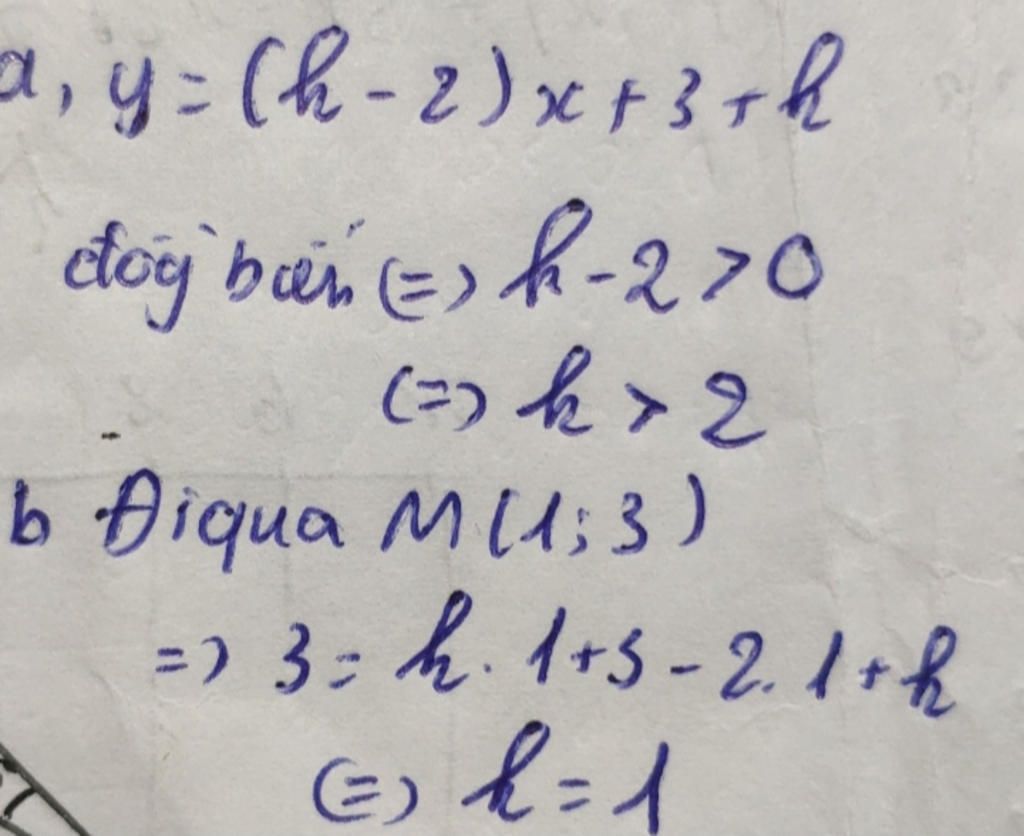 a, y = (k - 2) x + 3 + k
đồg biến (=> k - 2 > 0
(=> k > 2
b Đi qua M (1; 3)
=> 3 = k. 1 + 3 - 2. 1 + k
(=> k = 1